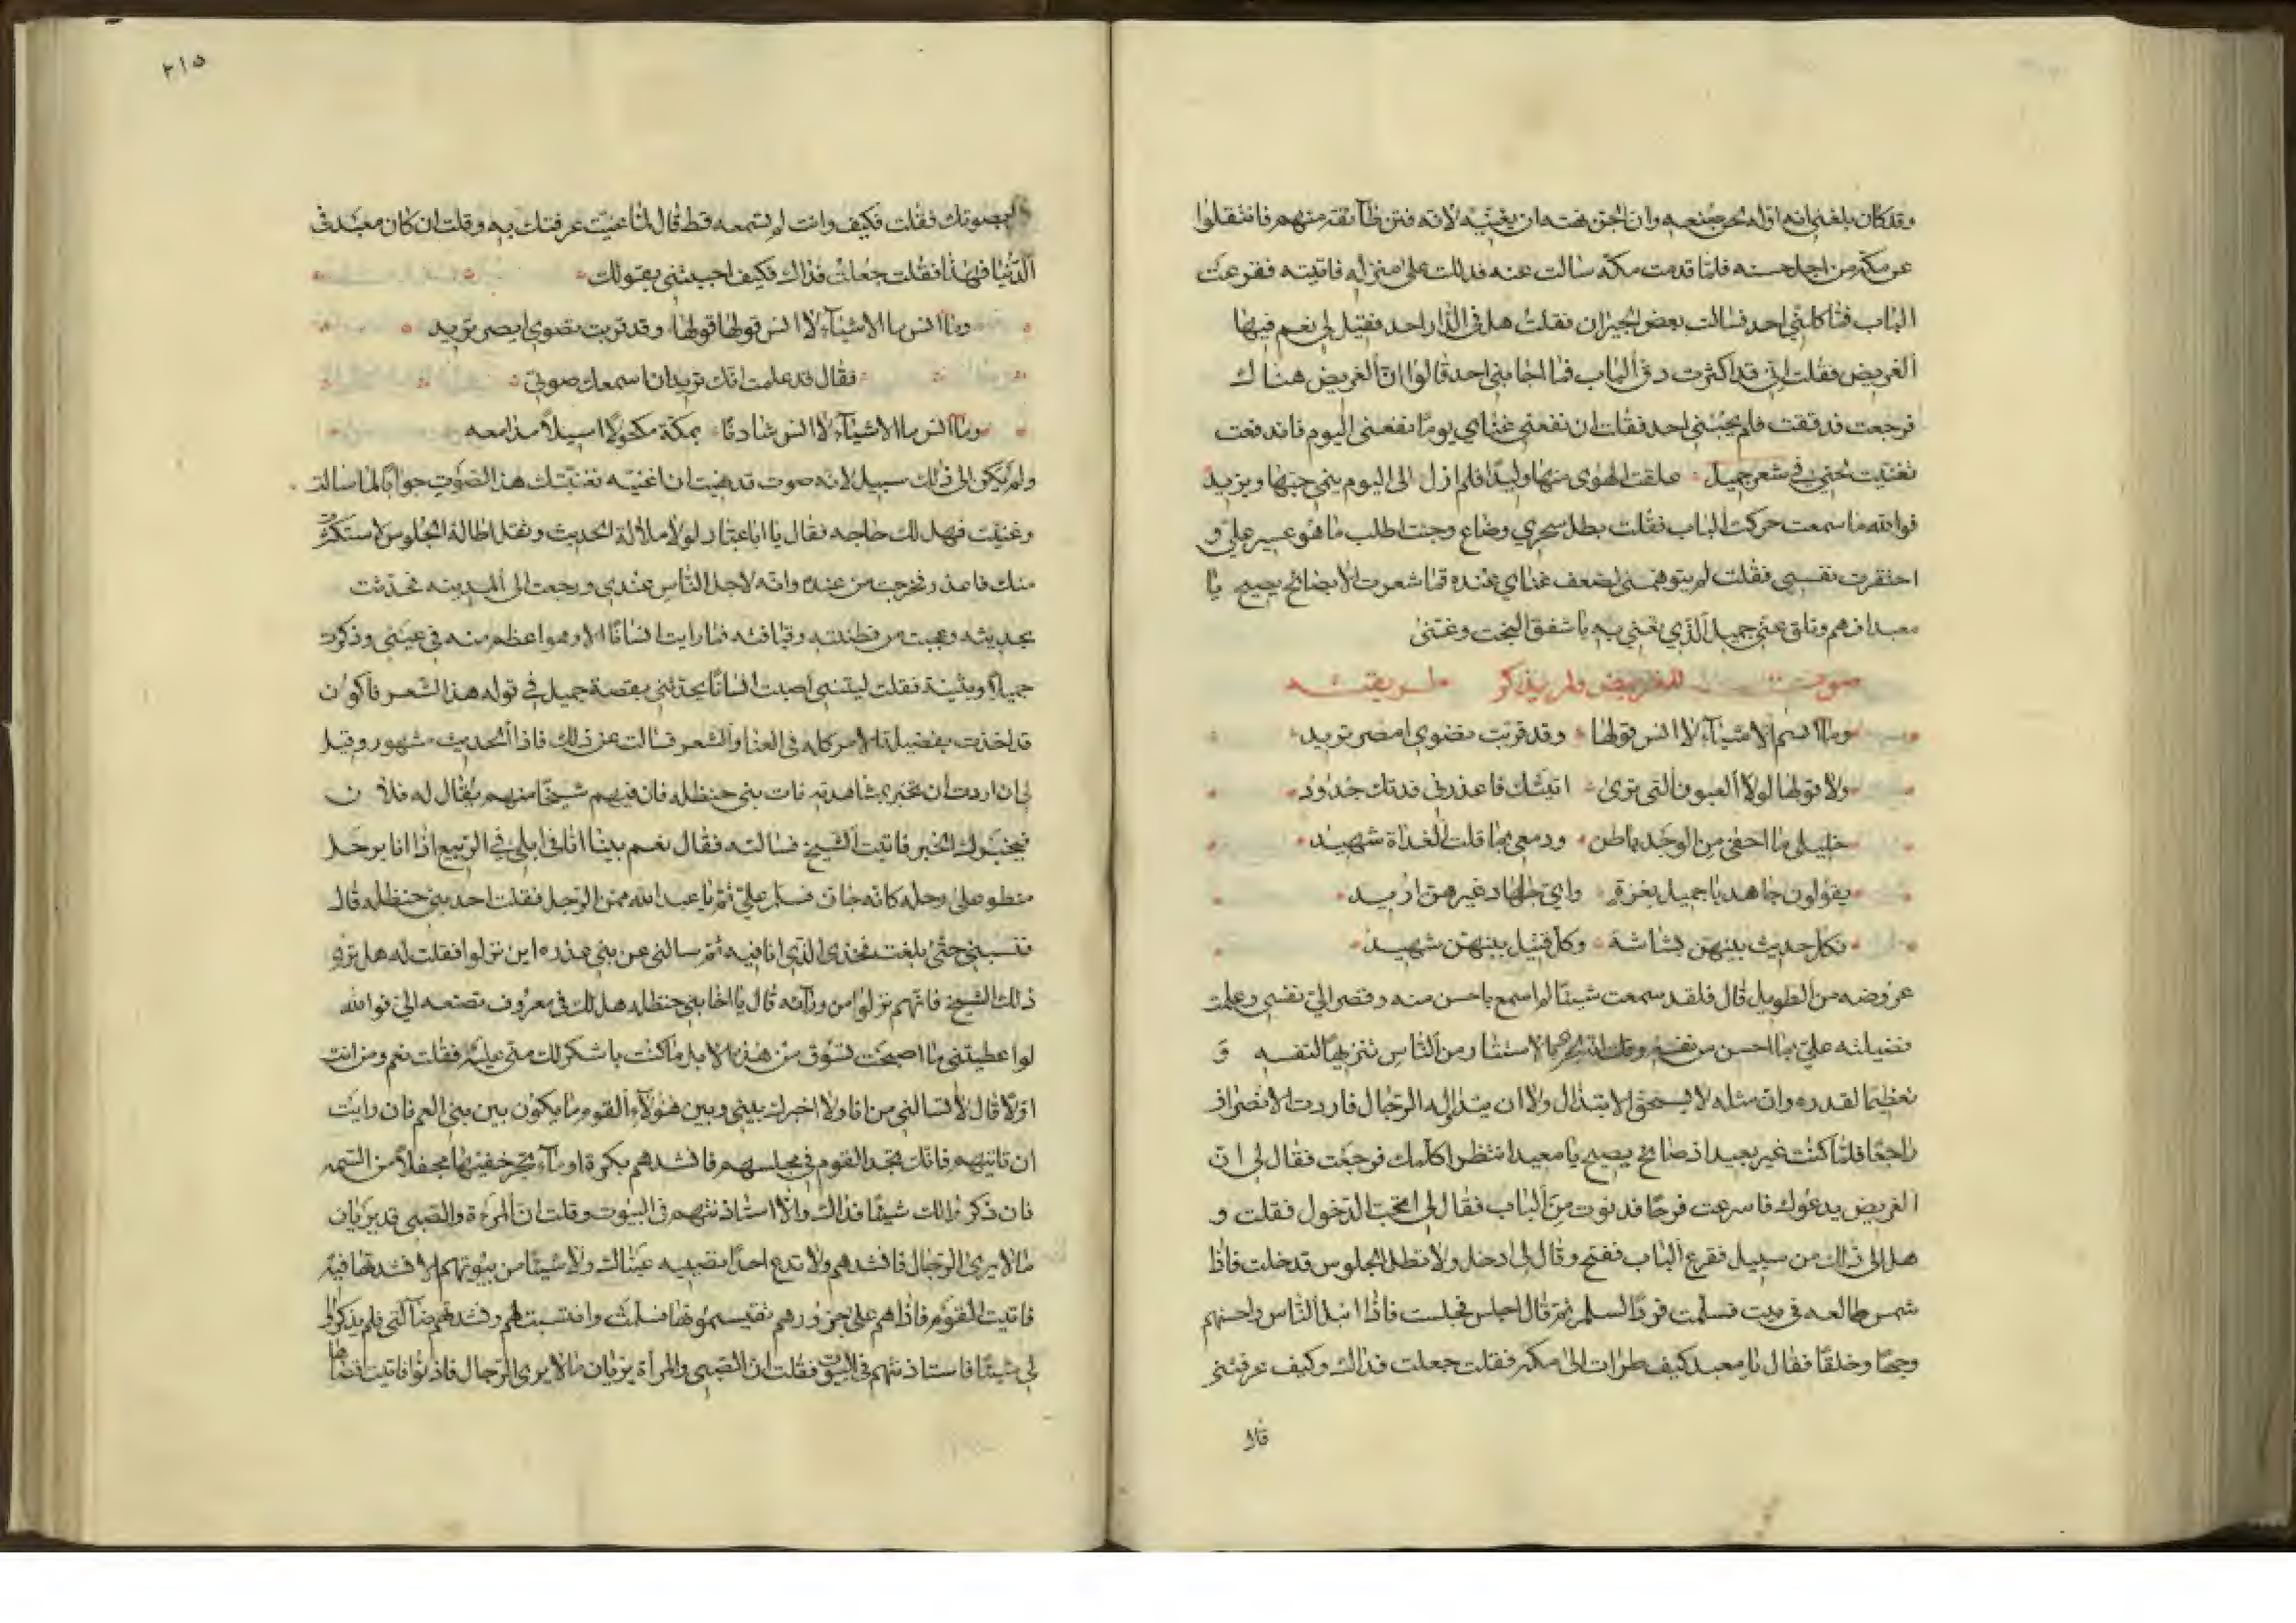 وقد كان بلغني انه اول لحن صنعه وان الجن نهته ان يغنيه لانه فتن طآئفة منهم فانتقلوا
عن مكة من اجل حسنه فلما قدمت مكة سالت عنه فدللت على منزله فاتيته فقرعت
الباب فما كلمني احد فسالت بعض الجيران فقلت هل في الدار احد فقيل لي نعم فيها
الغريض فقلت اني قد اكثرت دق الباب فما اجابني احد قالوا ان الغريض هناك
فرجعت فدققت فلم يجبني احد فقلت ان نفعني غناي يوما نفعني اليوم فاندفعت
فغنيت لحني في شعر جميل علقت الهوى منها وليدا فلم ازل الى اليوم ينمي حبها ويزيد
فوالله ما سمعت حركة الباب فقلت بطل سحري وضاع وجئت اطلب ما هو عسير علي و
احتقرت نفسي فقلت لم يتوهمني لضعف غناي عنده فما شعرت الا بصائح يصيح يا
معبد افهم وتلق عني جميل الذي تغني به يا شقي البخت وغنى
صوت للغريض ولم يذكر طريقته
وما انس م الاشيآء لا انس قولها وقد قربت نضوي امصر تريد
ولا قولها لولا العيون التي ترى اتيتك فاعذرني فدتك جدود
خليلي ما اخفي من الوجد باطن ودمعي بما قلت الغداة شهيد
يقولون جاهد يا جميل بغزة واي جهاد غيرهن اريد
لكل حديث بينهن بشاشة وكل قتيل بينهن شهيد
عروضه من الطويل قال فلقد سمعت شيئا لم اسمع باحسن منه وقصر الي نفسي وعلمت
فضيلته علي بما احسن من نفسه وقلت انه لحري بالاستتار من الناس تنزيها لنفسه و
تعظيما لقدره وان مثله لا يستحق الابتذال ولا ان يتداوله الرجال فاردت الانصراف
راجعا فلما كنت غير بعيد اذ صائح يصيح يا معبد انتظر اكلمك فرجعت فقال لي ان
الغريض يدعوك فاسرعت فرحا فدنوت من الباب فقال لي اتحب الدخول فقلت و
هل الى ذلك من سبيل فقرع الباب ففتح وقال لي ادخل ولا تطل الجلوس فدخلت فاذا
شمس طالعه في بيت فسلمت فرد السلم ثم قال اجلس فجلست فاذا انبل الناس واحسنهم
وجها وخلقا فقال يا معبد كيف طرات الى مكة فقلت جعلت فداك وكيف عرفتني
قال
٢١٥
بصوتك فقلت فكيف وانت لم تسمعه قط قال لما غنيت عرفتك به وقلت ان كان معبد في
الدنيا فهذا فقلت جعلت فداك فكيف اجبتني بقولك
وما انس ما الاشيآء لا انس قولها قولها وقد قربت نضوي ابصر تريد
فقال قد علمت انك تريد ان اسمعك صوتي
وما انس ما الاشيآء لا انس شادنا بمكة مكحولا اسيلا مدامعه
ولم يكن الى ذلك سبيل لانه صوت قد نهيت ان اغنيه فغنيتك هذا الصوت جوابا لما سالت
وغنيت فهل لك حاجه فقال يا ابا عباد لولا ملالة الحديث وثقل اطالة الجلوس لاستكثرت
منك فاعذر فخرجت من عنده وانه لاجل الناس عندي ورجعت الى المدينه فتحدثت
بحديثه وعجبت من فطنته وقيافته فما رايت انسانا الا وهو اعظم منه في عيني وذكرت
جميلا وبثينة فقلت ليتني اصبت انسانا يحدثني بقصة جميل في قوله هذا الشعر فاكون
قد اخذت بفضيلة الامر كله في الغنا والشعر فسالت عن ذلك فاذا الحديث مشهور وقيل
لي ان اردت ان تخبر بمشاهدته فات بني حنظله فان فيهم شيخا منهم يقال له فلان
يخبرك الخبر فاتيت الشيخ فسالته فقال نعم بينا انا في ابلي في الربيع اذا انا برجل
منطو على رحله كانه جان فسلم علي ثم يا عبد الله ممن الرجل فقلت احد بني حنظله قال
فنسبني حتى بلغت فخذى الذي انا فيه ثم سالني عن بني عذره اين نزلوا فقلت له هل ترى
ذلك الشيخ فانهم نزلوا من ورآئه قال يا اخا بني حنظله هل لك في معروف تصنعه الي فوالله
لو اعطيتني ما اصبحت تسوق من هذه الابل ما كنت باشكر لك مني عليه فقلت نعم ومن انت
اولا قال لا تسالني من انا ولا اخبرك بيني وبين هؤلآء القوم ما يكون بين بني العم فان رايت
ان تاتيهم فانك تجد القوم في مجلسهم فانشدهم بكرة اومآء تجر خفيها مجفلا من السمه
فان ذكروا لك شيئا فذاك والا استاذنتهم في البيوت وقلت ان المرءة والصبي قد يريان
ما لا يرى الرجال فانشدهم ولا تدع احدا تصيبه عيناك ولا شيئا من بيوتهم الا نشدتها فيه
فاتيت القوم فاذا هم على جزور هم يقتسمونها فسلمت وانتسبت لهم ونشدتهم ضآلتي فلم يذكروا
لي شيئا فاستاذنتهم في البيوت فقلت ان الصبي والمرأة يريان ما لا يرى الرجال فاذنوا فاتيت اقصاها